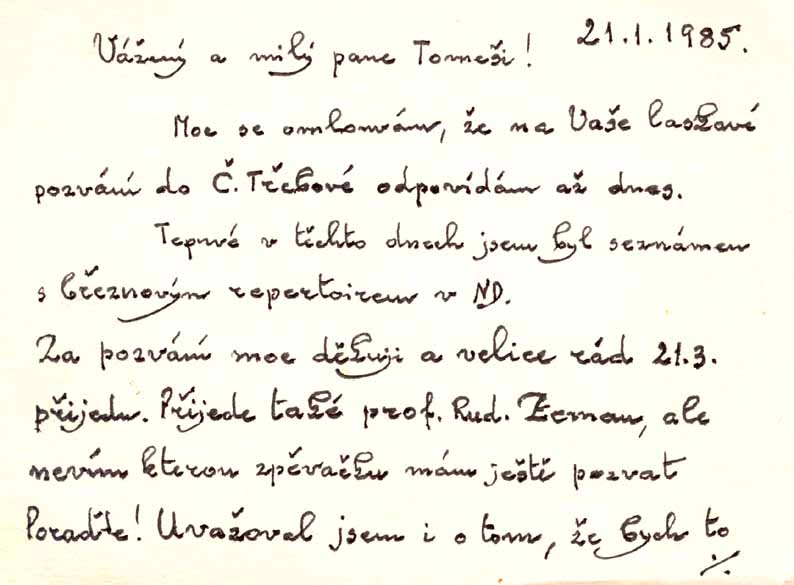 21.1.1985.
Vážený a milý pane Tomeši!
Moc se omlouvám, že na Vaše laskavé
pozvání do Č. Třebové odpovídám až dnes.
Teprvé v těchto dnech jsem byl seznámen
s březnovým repertoirem v ND.
Za pozvání moc děkuji a velice rád 21.3.
přijedu. Přijede také prof. Rud. Zeman, ale
nevím kterou zpěvačku mám ještě pozvat
Poraďte! Uvažoval jsem i o tom, že bych to
./.